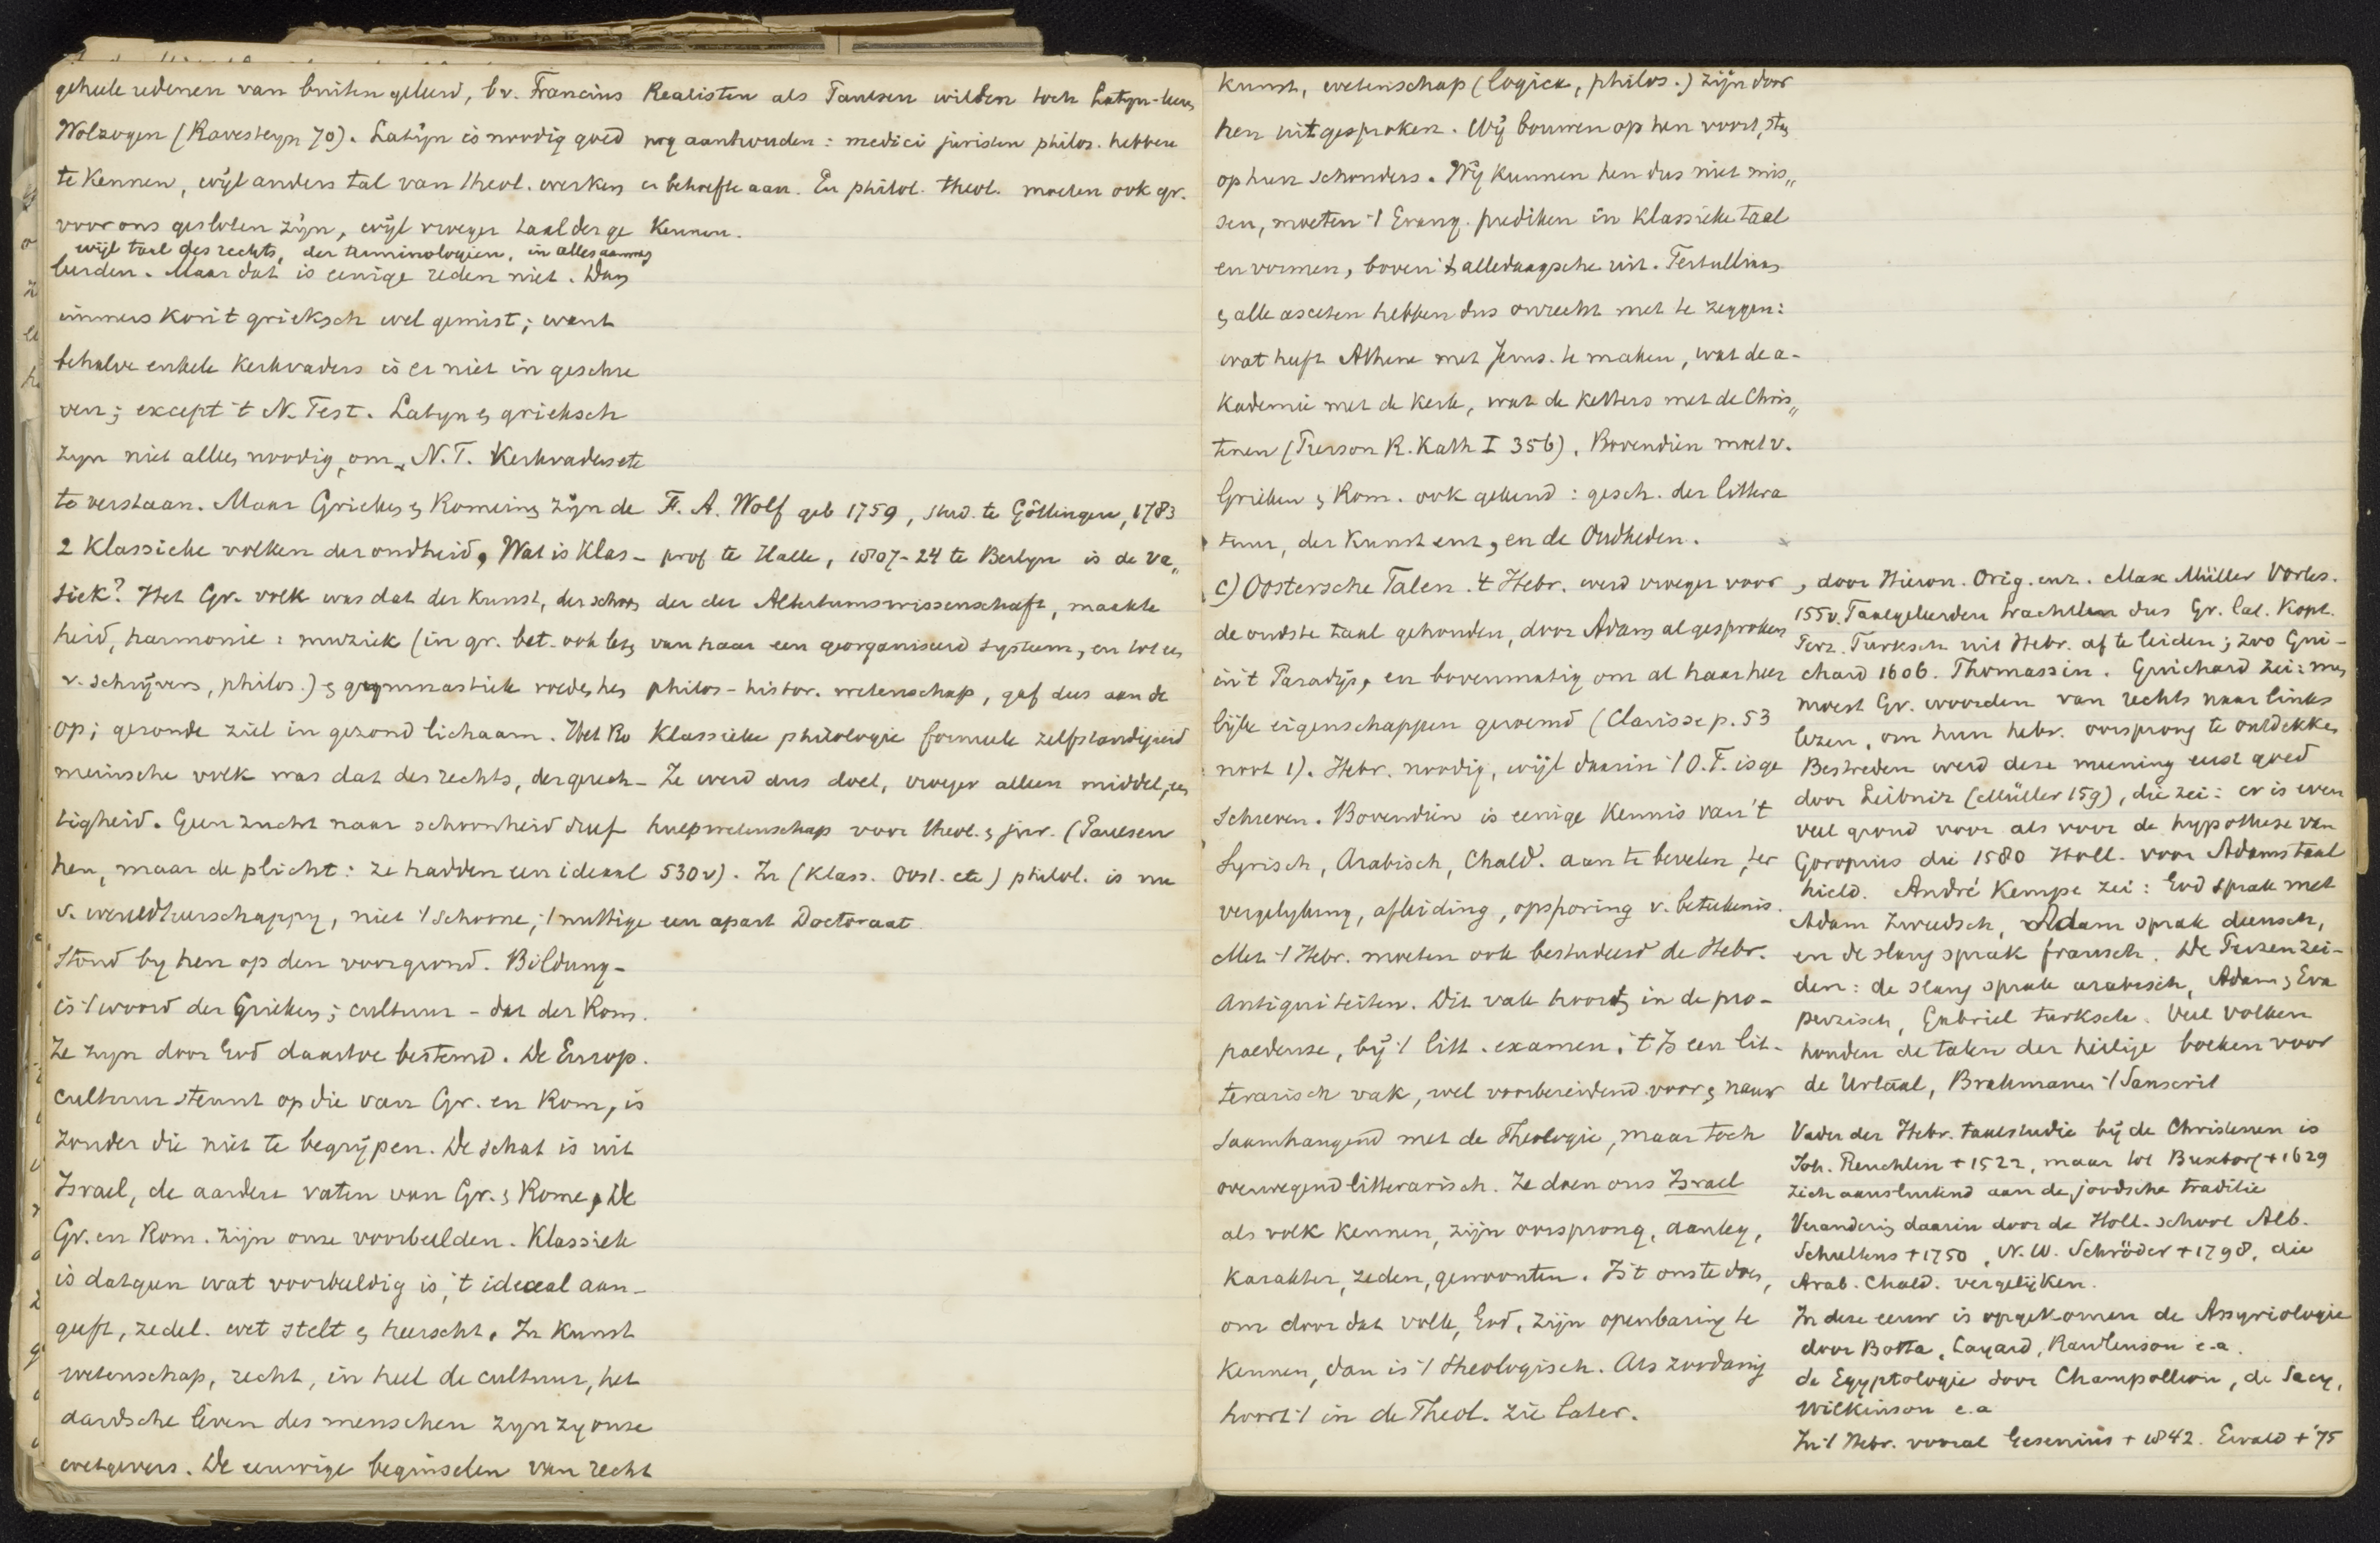 geheele redenen van buiten geleerd, bv. Francius
Wolzogen (Ravesteyn 70). Latijn is noodig goed
te kennen, wijl anders tal van theol. werken
voor ons gesloten zijn, wijl vroeger taal der ge
wijl taal des rechts, der terminologieen, in alles
leerden. Maar dat is eenige reden niet. Dan
immers kon 't grieksch wel gemist; want
behalve enkele kerkvaders is er niet in geschre
ven; except 't N. Test. Latyn en grieksch
zyn niet alleen noodig, om N.T. Kerkvaders etc
te verstaan. Maar Grieken en Romeinen zijn de
2 Klassieke volken der oudheid. Wat is klas-
siek? Het Gr. volk was dat der kunst, der schoon
heid, harmonie: muziek (in gr. bet. ook lez.
v. schrijvers, philos.) en gymnastiek voedde hen
op; gezonde ziel in gezond lichaam. Het Ro
meinsche volk was dat des rechts, der gerech-
tigheid. Geen zucht naar schoonheid dreef
hen, maar de plicht: ze hadden een ideaal
v. wereldheerschappy, niet 't schoone, 't nuttige
stond by hen op den voorgrond. Bildung-
is 't woord der Grieken; cultuur - dat der Rom.
Ze zyn door God daartoe bestemd. De Europ.
cultuur steunt op die van Gr. en Rom, is
zonder die niet te begrijpen. De schat is uit
Israel, de aarden vaten van Gr. en Rome. De
Gr. en Rom. zijn onze voorbeelden. Klassiek
is datgeen wat voorbeeldig is, 't ideaal aan-
geeft, zedel. wet stelt en heerscht. In kunst
wetenschap, recht, in heel de cultuur, het
aardsche leven des menschen zyn zy onze
wetgevers. De eeuwige beginselen van recht
Realisten als Paulsen wilden toch Latyn-leeren
nog aanhouden: medici juristen philos. hebben
er behoefte aan. En philol. theol. moeten ook gr.
kennen.
F. A. Wolf geb 1759, stud. te Göttingen, 1783
prof te Halle, 1807-24 te Berlyn is de va„
der der Altertumswissenschaft, maakte
van haar een georganiseerd systeem, en tot een
philos-histor. wetenschap, gaf dus aan de
Klassieke philologie formeele zelfstandigheid
Ze werd dus doel, vroeger alleen middel, een
hulpwetenschap voor theol. en jur. (Paulsen
530v). In (Klass. Oost. etc) philol. is nu
een apart Doctoraat.
kunst, wetenschap (logica, philos.) zijn door
hen uitgesproken. Wij bouwen op hen voort, staan
op hun schouders. Wij kunnen hen dus niet mis„
sen, moeten 't Evang. prediken in klassieke taal
en vormen, boven 't alledaagsche uit. Tertullianus
en alle asceten hebben dus onrecht met te zeggen:
wat heeft Athene met Jerus. te maken, wat de a-
kademie met de kerk, wat de ketters met de Chris„
tenen (Pierson R. Kath I 356). Bovendien moet v.
Grieken en Rom. ook gekend: gesch. der littera
tuur, der kunst enz, en de Oudheden.
c) Oostersche Talen. 't Hebr. werd vroeger voor
de oudste taal gehouden, door Adam al gesproken
in 't Paradijs, en bovenmatig om al haar heer
lijke eigenschappen geroemd (Clarisse p. 53
noot 1). Hebr. noodig, wijl daarin 't O.T. is ge
schreven. Bovendien is eenige kennis van 't
Syrisch, Arabisch, Chald. aan te bevelen, ter
vergelyking, afleiding, opsporing v. beteekenis.
Met 't Hebr. moeten ook bestudeerd de Hebr.
Antiquiteiten. Dit vak hoort in de pro-
paedeuse, bij 't litt. examen. 't Is een lit-
terarisch vak, wel voorbereidend voor en nauw
saamhangend met de Theologie, maar toch
overwegend litterarisch. Ze doen ons Israel
als volk kennen, zijn oorsprong, aanleg,
karakter, zeden, gewoonten. Is 't ons te doen,
om door dat volk, God, zijn openbaring te
kennen, dan is 't theologisch. Als zoodanig
hoort 't in de Theol. zie later.
, door Hieron. Orig. enz. Max Müller Vorles.
155v. Taalgeleerden trachtten dus Gr. Lat. Kopt.
Perz. Turksch uit Hebr. af te leiden; zoo Gui-
chard 1606. Thomassin. Guichard zei: men
moest Gr. woorden van rechts naar links
lezen, om hun hebr. oorsprong te ontdekken
Bestreden werd deze meening eerst goed
door Leibniz (Müller 159), die zei: er is even
veel grond voor als voor de hypothese van
Goropius die 1580 Holl. voor Adams taal
hield. André Kempe zei: God sprak met
Adam Zweedsch, Adam sprak deensch,
en de slang sprak fransch. De Perzen zei-
den: de slang sprak arabisch, Adam en Eva
perzisch, Gabriel turksch. Veel volken
houden de talen der heilige boeken voor
de Urtaal, Brahmanen 't Sanscrit
Vader der Hebr. taalstudie bij de Christenen is
Joh. Reuchlin + 1522, maar tot Buxtorf + 1629
zich aansluitend aan de joodsche traditie
Verandering daarin door de Holl. school Alb.
Schultens + 1750, N. W. Schröder + 1798, die
Arab. Chald. vergelijken.
In deze eeuw is opgekomen de Assyriologie
door Botta, Layard, Rawlinson e.a.
de Egyptologie door Champollion, de Sacy,
Wilkinson e.a
In 't Hebr. vooral Gesenius + 1842. Ewald + '75